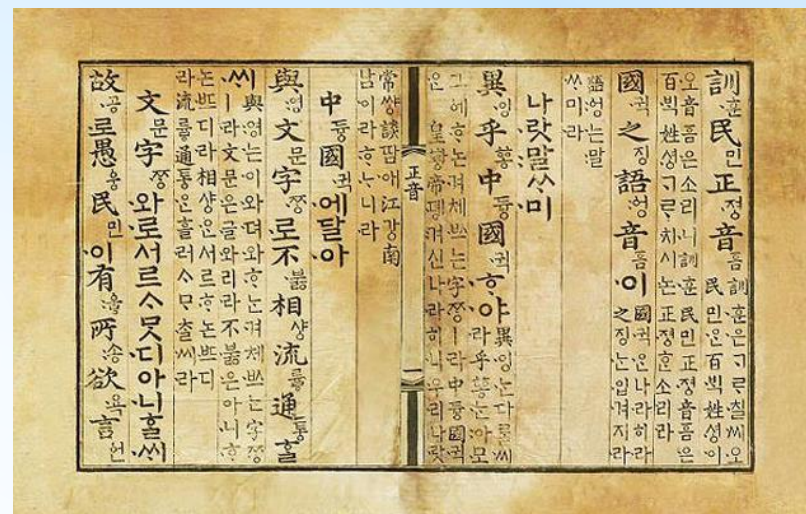 訓훈民민正져ᇰ音ᅙᅳᆷ
訓훈은ᄀᆞᄅᆞ칠씨오
民민ᄋᆞᆫ百ᄇᆡᆨ姓셔ᇰ이
오音ᅙᅳᆷ은소리니訓훈民민正져ᇰ音ᅙᅳᆷ은
百ᄇᆡᆨ姓셔ᇰᄀᆞᄅᆞ치시논正져ᇰᄒᆞᆫ소리라
國귁之징語ᅌᅥᆼ音ᅙᅳᆷ이
國귁은나라히라
之징ᄂᆞᆫ입겨지라
語ᅌᅥᆼ는말
ᄊᆞ미라
나랏말ᄊᆞ미
異잉乎ᅘᅩᆼ中듀ᇰ國귁ᄒᆞ야
異잉ᄂᆞᆫ다ᄅᆞᆯ씨
라乎ᅘᅩᆼᄂᆞᆫ아모
그ᅌᅦᄒᆞ논겨체ᄡᅳ는字ᄍᆞᆼㅣ라中듀ᇰ國귁
은皇ᅘᅪᇰ帝뎽겨신나라히니우리나랏
正音
常쌰ᇰ談땀애江가ᇰ南
남이라ᄒᆞᄂᆞ니라
中듀ᇰ國귁에달아
與영文문字ᄍᆞᆼ로不부ᇙ相샤ᇰ流류ᇢ通토ᇰᄒᆞᆯ
ᄊᆡ
與영는이와뎌와ᄒᆞ는겨체ᄡᅳ는字ᄍᆞᆼ
ㅣ라文문은글와리라不부ᇙ은아니ᄒᆞ
논ᄠᅳ디라相샤ᇰᄋᆞᆫ서르ᄒᆞ논ᄠᅳ디
라流류ᇢ通토ᇰᄋᆞᆫ흘러ᄉᆞᄆᆞᄎᆞᆯ씨라
文문字ᄍᆞᆼ와로서르ᄉᆞᄆᆞᆺ디아니ᄒᆞᆯᄊᆡ
故공로愚ᅌᅮᆼ民민이有우ᇢ所송欲욕言언